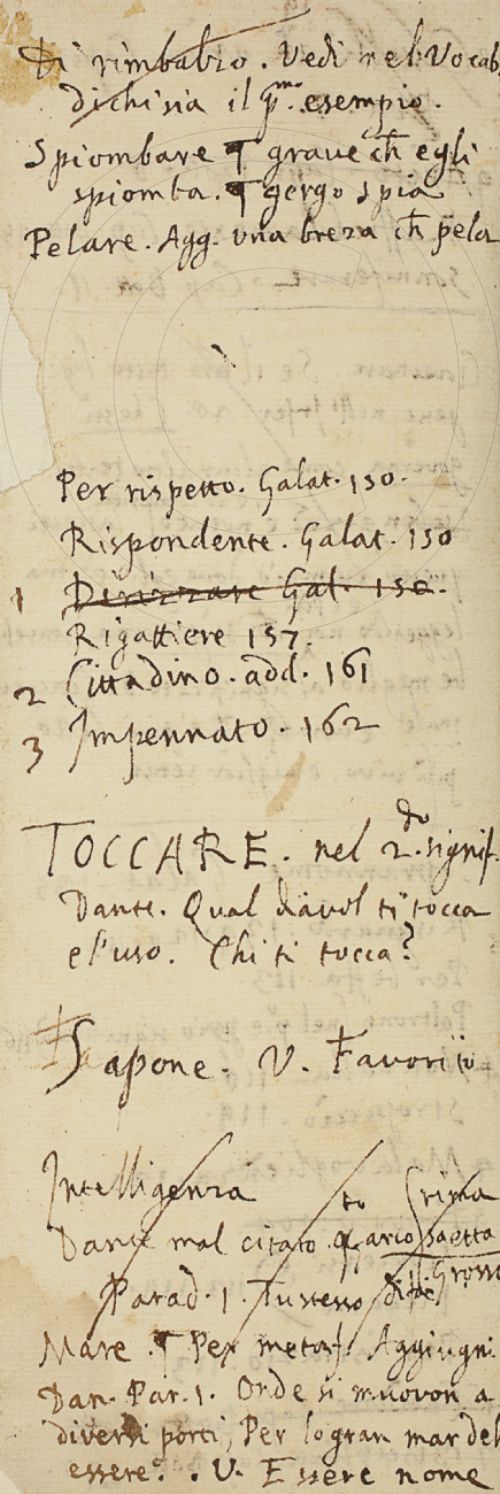 Di rimbalzo. Vedi nel Vocab.
dichisia il pmo. esempio.
Spiombare ¶ grave ch egli
spiomba. ¶ gergo spia
Pelare. Agg. una breza ch pela
Per rispetto. Galat. 130.
Rispondente. Galat. 130
1 Dirizzare Gal. 130.
Rigattiere 157.
2 Cittadino. add. 161
3 Impennato. 162
TOCCARE. nel 2.do signif.
Dante. Qual diavol ti tocca
e l'uso. Chi ti tocca?
Sapone. V. Favorito
Intelligenza
to (rima
Dante mal citato. arco saetta
Grosso
Parad. 1. Tu stesso
Mare. ¶ Per metaf. Aggiugni
Dan. Par. 1. Onde si muovon a
diversi porti, Per lo gran mar del
essere. . V. Essere nome